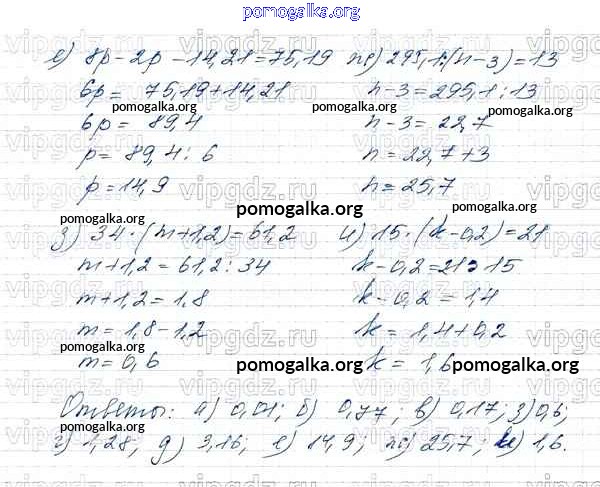 pomogalka.org
е) 8p-2p-14,21=75,19 ж) 295,1:(n-3)=13
6p= 75,19+14,21 n-3=295,1:13
pomogalka.org pomogalka.org
6p= 89,4 n-3= 22,7
p= 89,4: 6 n= 22,7+3
p=14,9 n=25,7
pomogalka.org pomogalka.org
з) 34·(m+1,2)=61,2 и) 15·(k-0,2)=21
m+1,2=61,2:34 k-0,2=21:15
m+1,2=1,8 k-0,2=1,4
m=1,8-1,2 k= 1,4+0,2
pomogalka.org
m=0,6 pomogalka.org k= 1,6 pomogalka.org
Ответы: а) 0,01; б) 0,77; в) 0,17; з) 0,6;
pomogalka.org
г) 1,28; д) 3,16; е) 14,9; ж) 25,7; и) 1,6.
vipgdz.ru